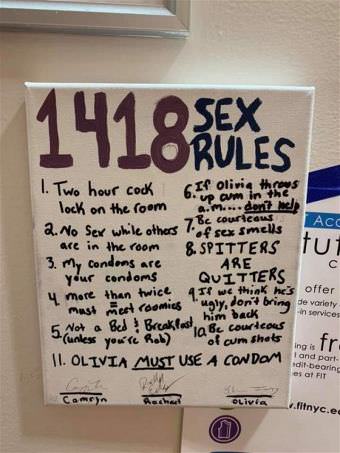 1418 SEX
RULES
1. Two hour cock
lock on the room
2. No Sex while others
are in the room
3. My condoms are
your condoms
4. more than twice
must meet roomies
5. Not a Bed & Breakfast
(unless you're Rob)
6. If Olivia throws
up cum in the
a.m.... don't help
7. Be courteous
of sex smells
8. SPITTERS
ARE
QUITTERS
9. If we think he's
ugly, don't bring
him back
10. Be courteous
of cum shots
11. OLIVIA MUST USE A CONDOM
Camryn
Rachael
Olivia
Acc
tut
C
offer
de variety
-in services
ing is fr
t and part-
edit-bearing
es at FIT
.fitnyc.e